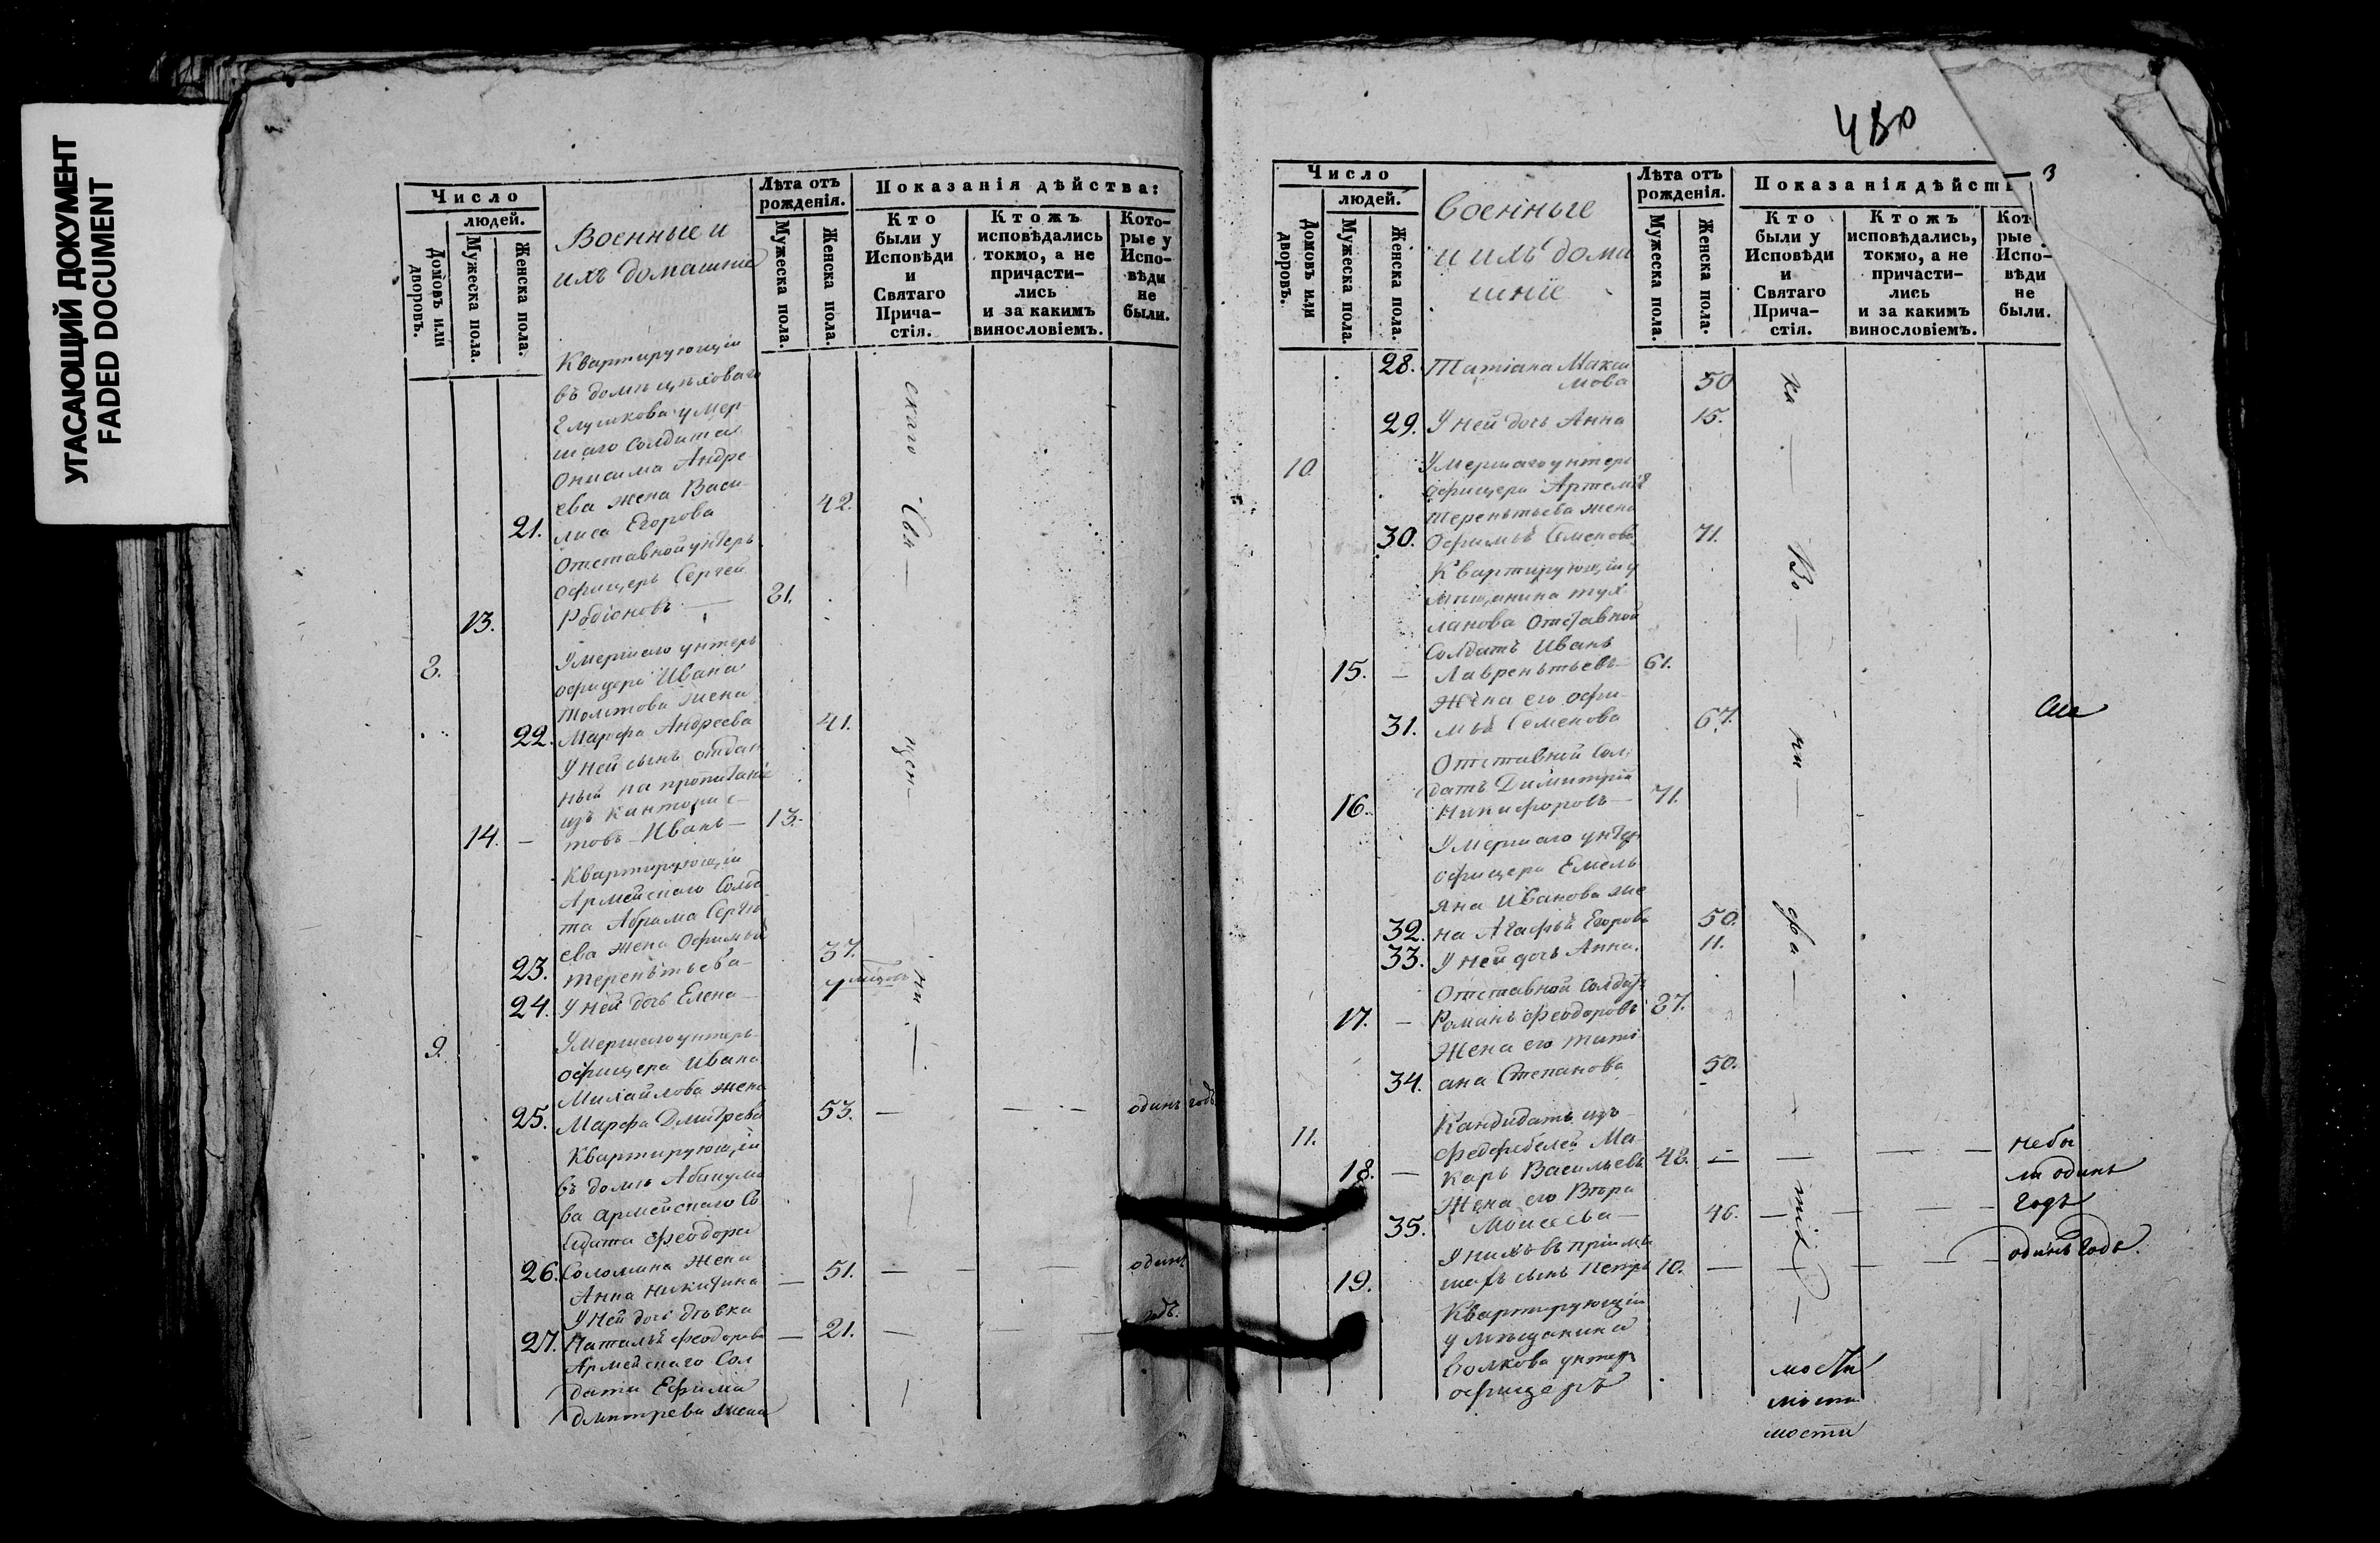 УГАСАЮЩИЙ ДОКУМЕНТ
FADED DOCUMENT
Число
людей.
Домовъ или дворовъ.
Мужеска пола.
Женска пола.
Военные и
ихъ домашніе
Лѣта отъ рожденія.
Мужеска пола.
Женска пола.
Показанія дѣйства:
Кто были у Исповѣди и Святаго Прича-стія.
Ктожъ исповѣдались токмо, а не причасти-лись и за какимъ винословіемъ.
Кото-рые у Испо-вѣди не были.
Квартирующій
въ домѣ цеховаго
Глушкова умер
шаго Солдата
Онисима Андре
ева жена Васи
21. лиса Егорова 42.
Отставной унтеръ
офицеръ Сергей
13. Родіоновъ — 81.
8. Умершаго унтеръ
офицера Ивана
Толстова жена
22. Марфа Андреева 41.
У ней сынъ отдан
ный на пропитаніе
изъ кантонис
14. — товъ Иванъ — 13.
Квартирующій
Армейскаго Солда
та Абрама Сергѣ
ева жена Офимья
23. Терентьева — 37.
24. У ней дочь Елена —
9. Умершаго унтеръ
офицера Ивана
Михайлова жена
25. Марфа Дмитрева 53. — — — одинъ годъ
Квартирующій
въ домѣ
ва армейскаго Со
лдата Феодора
26. Соломина жена 51. — — одинъ
Анна Никитина —
У ней дочь дѣвка годъ.
27. Наталья Феодорова — 21. — — —
Армейскаго Сол
дата Ефима
Дмитрева жена
480
Число
людей.
Домовъ или дворовъ.
Мужеска пола.
Женска пола.
Военные
и ихъ дома
шніе
Лѣта отъ рожденія.
Мужеска пола.
Женска пола.
Показанія дѣйст
Кто были у Исповѣди и Святаго Прича-стія.
Ктожъ исповѣдались, токмо, а не причасти-лись и за какимъ винословіемъ.
Кот рые Испо-вѣди не были.
28. Татіана Макси
мова 50
29. У ней дочь Анна 15.
10. Умершаго унтеръ
офицера Артемія
Терентьева жена
30. Офимья Семенова 71.
Квартирующій у
мѣщанина
Отставной
Солдатъ Иванъ
15. — Лаврентьевъ — 61.
Жена его Офи
31. мья Семенова 67.
Отставной Сол
датъ Димитрій
16. Никифоровъ — 71.
Умершаго унтер
офицера Емель
яна Иванова же
32. на Агафья Егорова 50.
33. У ней дочь Анна. 11.
Отставной Солдатъ
17. — Романъ Феодоровъ 87.
Жена его Тати
34. ана Степанова 50.
11. Кандидатъ изъ
фелдфебелей Ма
18. — каръ Васильевъ 48. — — — — небы
Жена его ли одинъ
35. Моисеева — 46. — — — — годъ
У нихъ въ пріемы
19. шахъ сынъ Петръ 10. — — — одинъ годъ.
Квартирующій
у мѣщанина
Волкова унтер
офицеръ
мости
мости
мости